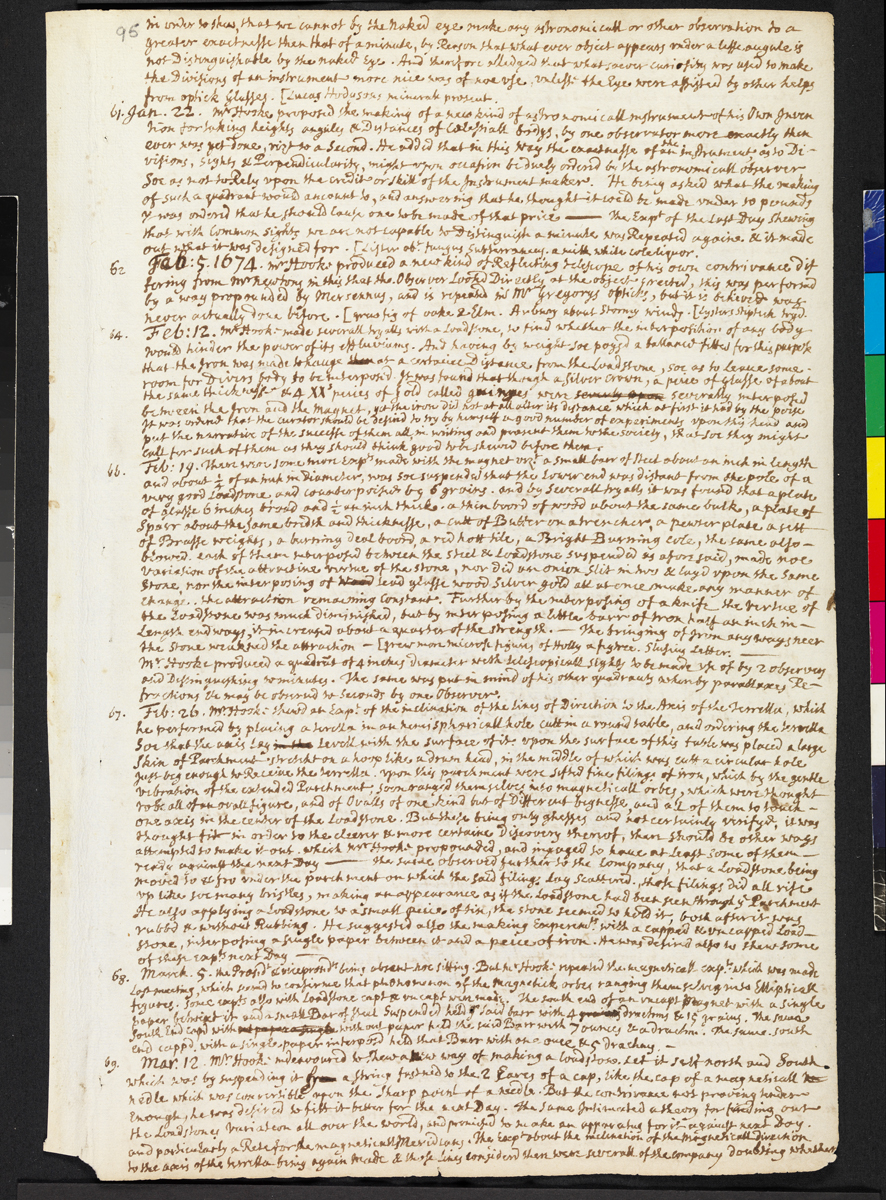 95
in order to shew, that we cannot by the naked eye make any astronomicall or other observation to a
greater exactnesse then that of a minute, by Reason that what ever object appears under a lesse angule is
not Distinguishable by the naked Eye. And therefore alledged that what soever curiosity was used to make
the Divisions of an instrument more nice was of noe use. unlesse the Eye were assisted by other helps
from optick glasses. [Lucas Hodgsons minerals present.
61. Jan. 22. Mr Hooke proposed the making of a new kind of astronomicall instrument of his Own Inven
tion for taking heights angules & Distances of Celestiall bodys, by one observator more exactly then
ever was yet done, vizt to a Second. He added that in this way the exactnesse of the instrument as to Di-
visions, sights & Perpendicularity, might upon occasion be duely ordered by the astronomicall observer
Soe as not to Rely upon the credit or skill of the Instrument maker. He being asked what the making
of such a quadrant would amount to, and answering that he thought it could be made under 10 pounds
It was ordered that he should cause one to be made of that price —— The Expt of the Last Day shewing
that with common sights we are not capable to Distinguish a minute was Repeated againe & it made
out what it was designed for. [Lister abt fungus subterraneus a milk white coleliquor.
62 Feb: 5. 1674. Mr Hooke produced a new kind of Reflecting telescope of his own contrivance dif
fering from Mr Newtons in this that the Observer Looked Directly at the object spected, this was performd
by a way propounded by Mersennus, and is repeated in Mr Gregorys opticks, but it is believed was
never actually done before. [ grusty of oake & Elm. Arbuay about stormy windy. [Lysters Stiptick tryd.
64. Feb: 12. Mr Hooke made severall tryalls with a Loadstone, to find whether the interposition of any body
would hinder the power of its effluviums. And having by weight soe poysd a ballance fitted for this purpose
that the Iron was made to hange at a certaine Distance from the Loadstone, soe as to Leave some
room for Divers body to be interposd. It was found that though a Silver Crown, a peice of glasse of about
the same thicknesse & 4 XXs peices of gold called guinyes were severally interposed
between the Iron and the Magnet, yet the iron did not at all alter its distance which at first it had by the poise
It was orderd that the curator should be desird to try by himself a good number of experiments upon this head and
put the narrative of the successe of them all in writing and present them to the society, that soe they might
call for such of them as they should think good to be shewd before them.
66. Feb: 19. There were some more Expts made with the magnet vizt a small barr of Steel about an inch in Length
and about ¼ of an inch in Diameter, was soe suspended that the Lower end was distant from the pole of a
very good Loadstone, and counterpoised by 6 grains. and by Severall tryalls it was found that a plate
of glasse 6 inches broad and ½ an inch thick. a thin bord of wood about the same bulk, a plate of
Sparr about the same bredth and thicknesse, a cutt of Butter on a trencher, a pewter plate a sett
of Brasse weights, a burning deal board, a red hott tile, a Bright Burning cole, the same also-
being each of them interposed between the Steel & Loadstone suspended as aforesaid, made noe
variation of the attractive vertue of the stone, nor did an onion slit in two & layd upon the same
Stone, nor the interposing of lead glasse wood Silver gold all at once make any manner of
change. the attraction remaining constant. Further by the interposing of a knife the vertue of
the Loadstone was much diminished, but by interposing a little barr of Iron half an inch in-
Length endways, it increased about a quarter of the strength. — The bringing of Iron any ways neer
the Stone weakned the attraction — [grew more microsc. figures of Holly & figtree. Slusius Letter.
Mr Hooke produced a quadrat of 4 inches diameter with telescopicall sights to be made use of by 2 observers
and Distinguishing to minutes. The same was put in mind of his other quadrant wherby parallaxes Re-
fractions &c may be observd to Seconds by one Observer.
67. Feb: 26. Mr Hook: shewd an Expt of the inclination of the Lines of Direction to the Axis of the Terrella, which
he performed by placing a terella in an hemisphericall hole cutt in a round table, and ordering the terrella
Soe that the axis Lay levell with the surface of it: upon the surface of this table was placed a large
Skin of Parchment stretcht on a hoop like a drum head, in the middle of which was cutt a circular hole
just beg enough to Receive the terrella. Upon this parchment were sifted fine filings of iron, which by the gentle
vibration of the extended Parchment soon ranged themselves into magneticall orbes, which were thought
to be all of an ovall figure, and of Ovalls of one kind but of Different bignesse, and all of them to touch-
one axis in the center of the Loadstone. But these being only ghesses and not certainly verifyd, it was
thought fitt in order to the cleerer & more certaine discovery therof, ther should be other ways
attempted to make it out. which Mr Hooke propounded, and ingaged to have at Least some of them-
ready against the next Day —— the same observed further to the Company, that a Loadstone being
moved to & fro under the parchment on which the said filings Lay scattered, those filings did all rise
up like soe many bristles, making an appearance as if the Loadstone had been seen through ye Parchment
He also applying a Loadstone to a small peice of tin, the stone seemed to hold it, both after it was
rubbd & without Rubbing. He suggested also the making Experemts with a capped & uncapped Load-
stone, interposing a single paper between it and a peice of iron. He was desired also to shew some
of these expts next Day —
68. March. 5. the Presidt & vicepresidt being absent noe sitting. But Mr Hook: repeated the magneticall expt. which was made
Last meeting, which seemd to confirme that phenomenon of the magnetick orbes ranging themselves into Ellipticall
figures. Some expts also with Loadstone capt & uncapt were made. The south end of an uncapt magnet with a single
paper betwixt it and a small Bar of steel Suspended held ye said barr with 4 drachms & 15 grains. The same
South End capd with without paper held the said Barr with 7 ounces & a drachm. The same south
end cappd, with a single paper interposed held that Barr with an ounce & 5 drachms. —
69. Mar. 12. Mr Hook: indeavourd to shew a New way of making a loadstone Let it self north and South.
which was by suspending it a string fastned to the 2 Eares of a cap, like the cap of a magneticall
needle which was convertible upon the sharp point of a needle. But the contrivance not proving tender
Enough, he was desired to fitt it better for the next Day. The same Intimated a theory for finding out
the Loadstones variation all over the world, and promisd to make an apparatus for it against next Day.
and particularly a Rete for the magneticall Meridians. The Expt about the inclination of the Magneticall direction
to the axis of the terrella being again made & those Lines considerd then were severall of the company doubting whether